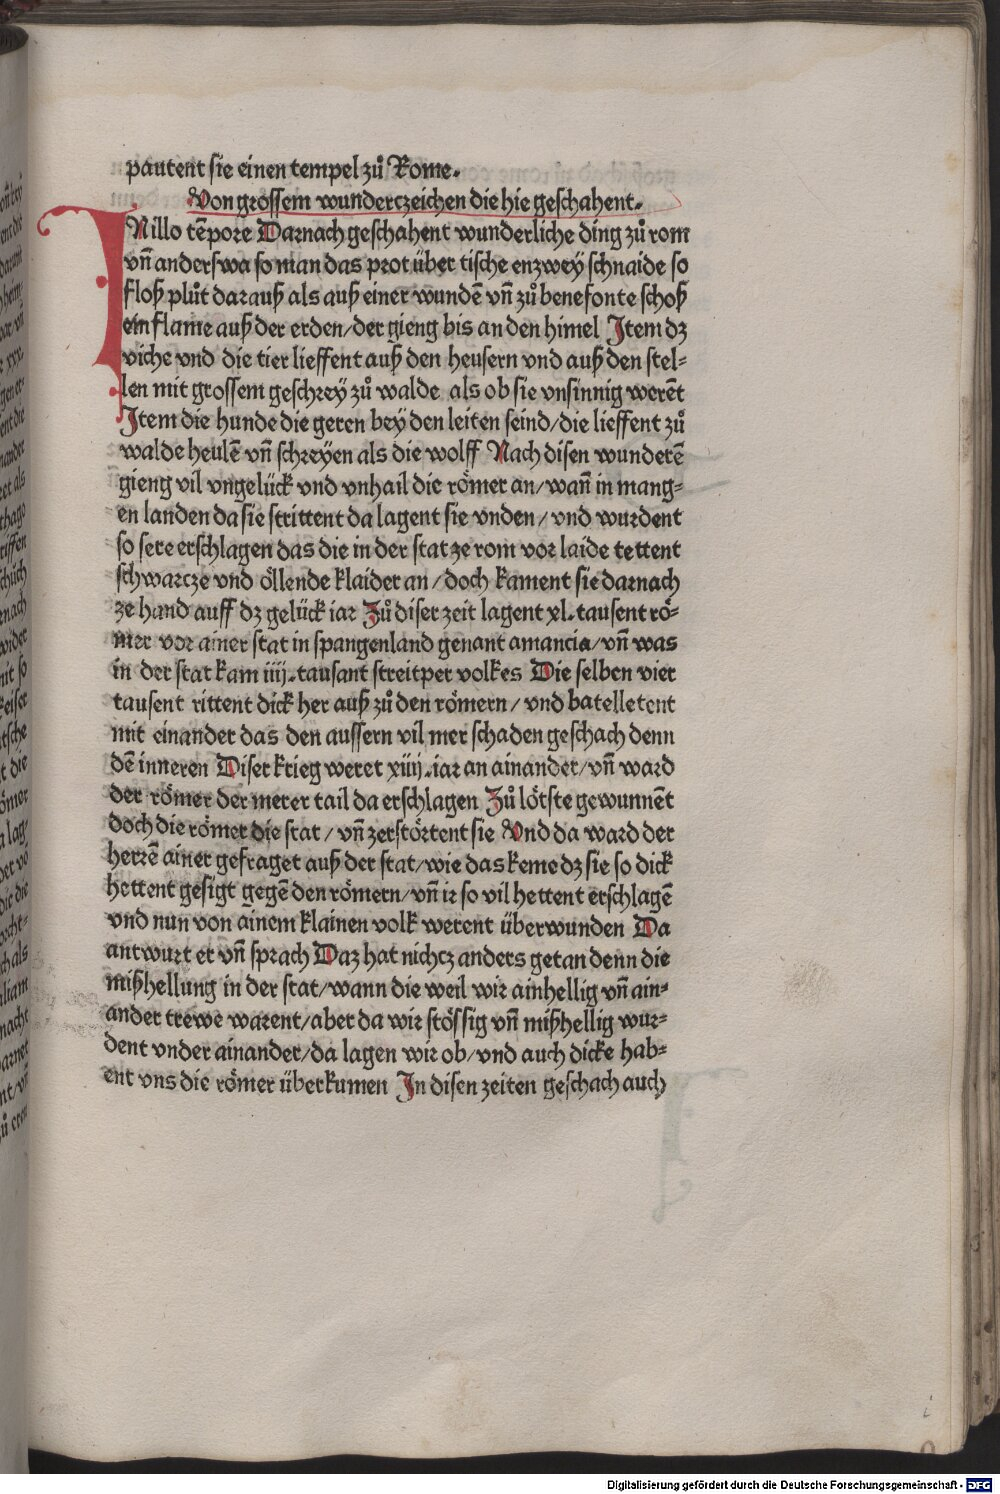 pautent sie einen tempel zů Rome.
Von grössem wunderczeichen die hie geschahent.
INillo tēpore Darnach geschahent wunderliche ding zů rom
vn̄ anderswa so man das prot über tische enzwey schnaide so
floß plůt darauß als auß einer wundē vn̄ zů benefonte schoß
ein flame auß der erden/der gieng bis an den himel Item dz
viche vnd die tier lieffent auß den heusern vnd auß den stel⸗
len mit grossem geschrey zů walde als ob sie vnsinnig werēt
Item die hunde die geren bey den leiten seind/die lieffent zů
walde heulē vn̄ schreyen als die wolff Nach disen wunderē
gieng vil vngelück vnd vnhail die römer an/wan̄ in mang⸗
en landen da sie strittent da lagent sie vnden/vnd wurdent
so sere erschlagen das die in der stat ze rom vor laide tettent
schwarcze vnd öllende klaider an/doch kament sie darnach
ze hand auff dz gelück iar Zů diser zeit lagent xl.tausent rö⸗
mer vor ainer stat in spangenland genant amancia/vn̄ was
in der stat kam iiij.tausant streitper volkes Die selben vier
tausent rittent dick her auß zů den römern/vnd batelletent
mit einander das den aussern vil mer schaden geschach denn
dē inneren Diser krieg weret xiiij.iar an ainander/vn̄ ward
der römer der merer tail da erschlagen Zů lötste gewunnēt
doch die römer die stat/vn̄ zerstörtent sie Vnd da ward der
herrē ainer gefraget auß der stat/wie das keme dz sie so dick
hettent gesigt gegē den römern/vn̄ ir so vil hettent erschlagē
vnd nun von ainem klainen volk werent überwunden Da
antwurt er vn̄ sprach Daz hat nichcz anders getan denn die
mißhellung in der stat/wann die weil wir ainhellig vn̄ ain⸗
ander trewe warent/aber da wir stössig vn̄ mißhellig wur⸗
dent vnder ainander/da lagen wir ob/vnd auch dicke hab⸗
ent vns die römer überkumen In disen zeiten geschach auch
i
Digitalisierung gefördert durch die Deutsche Forschungsgemeinschaft - DFG